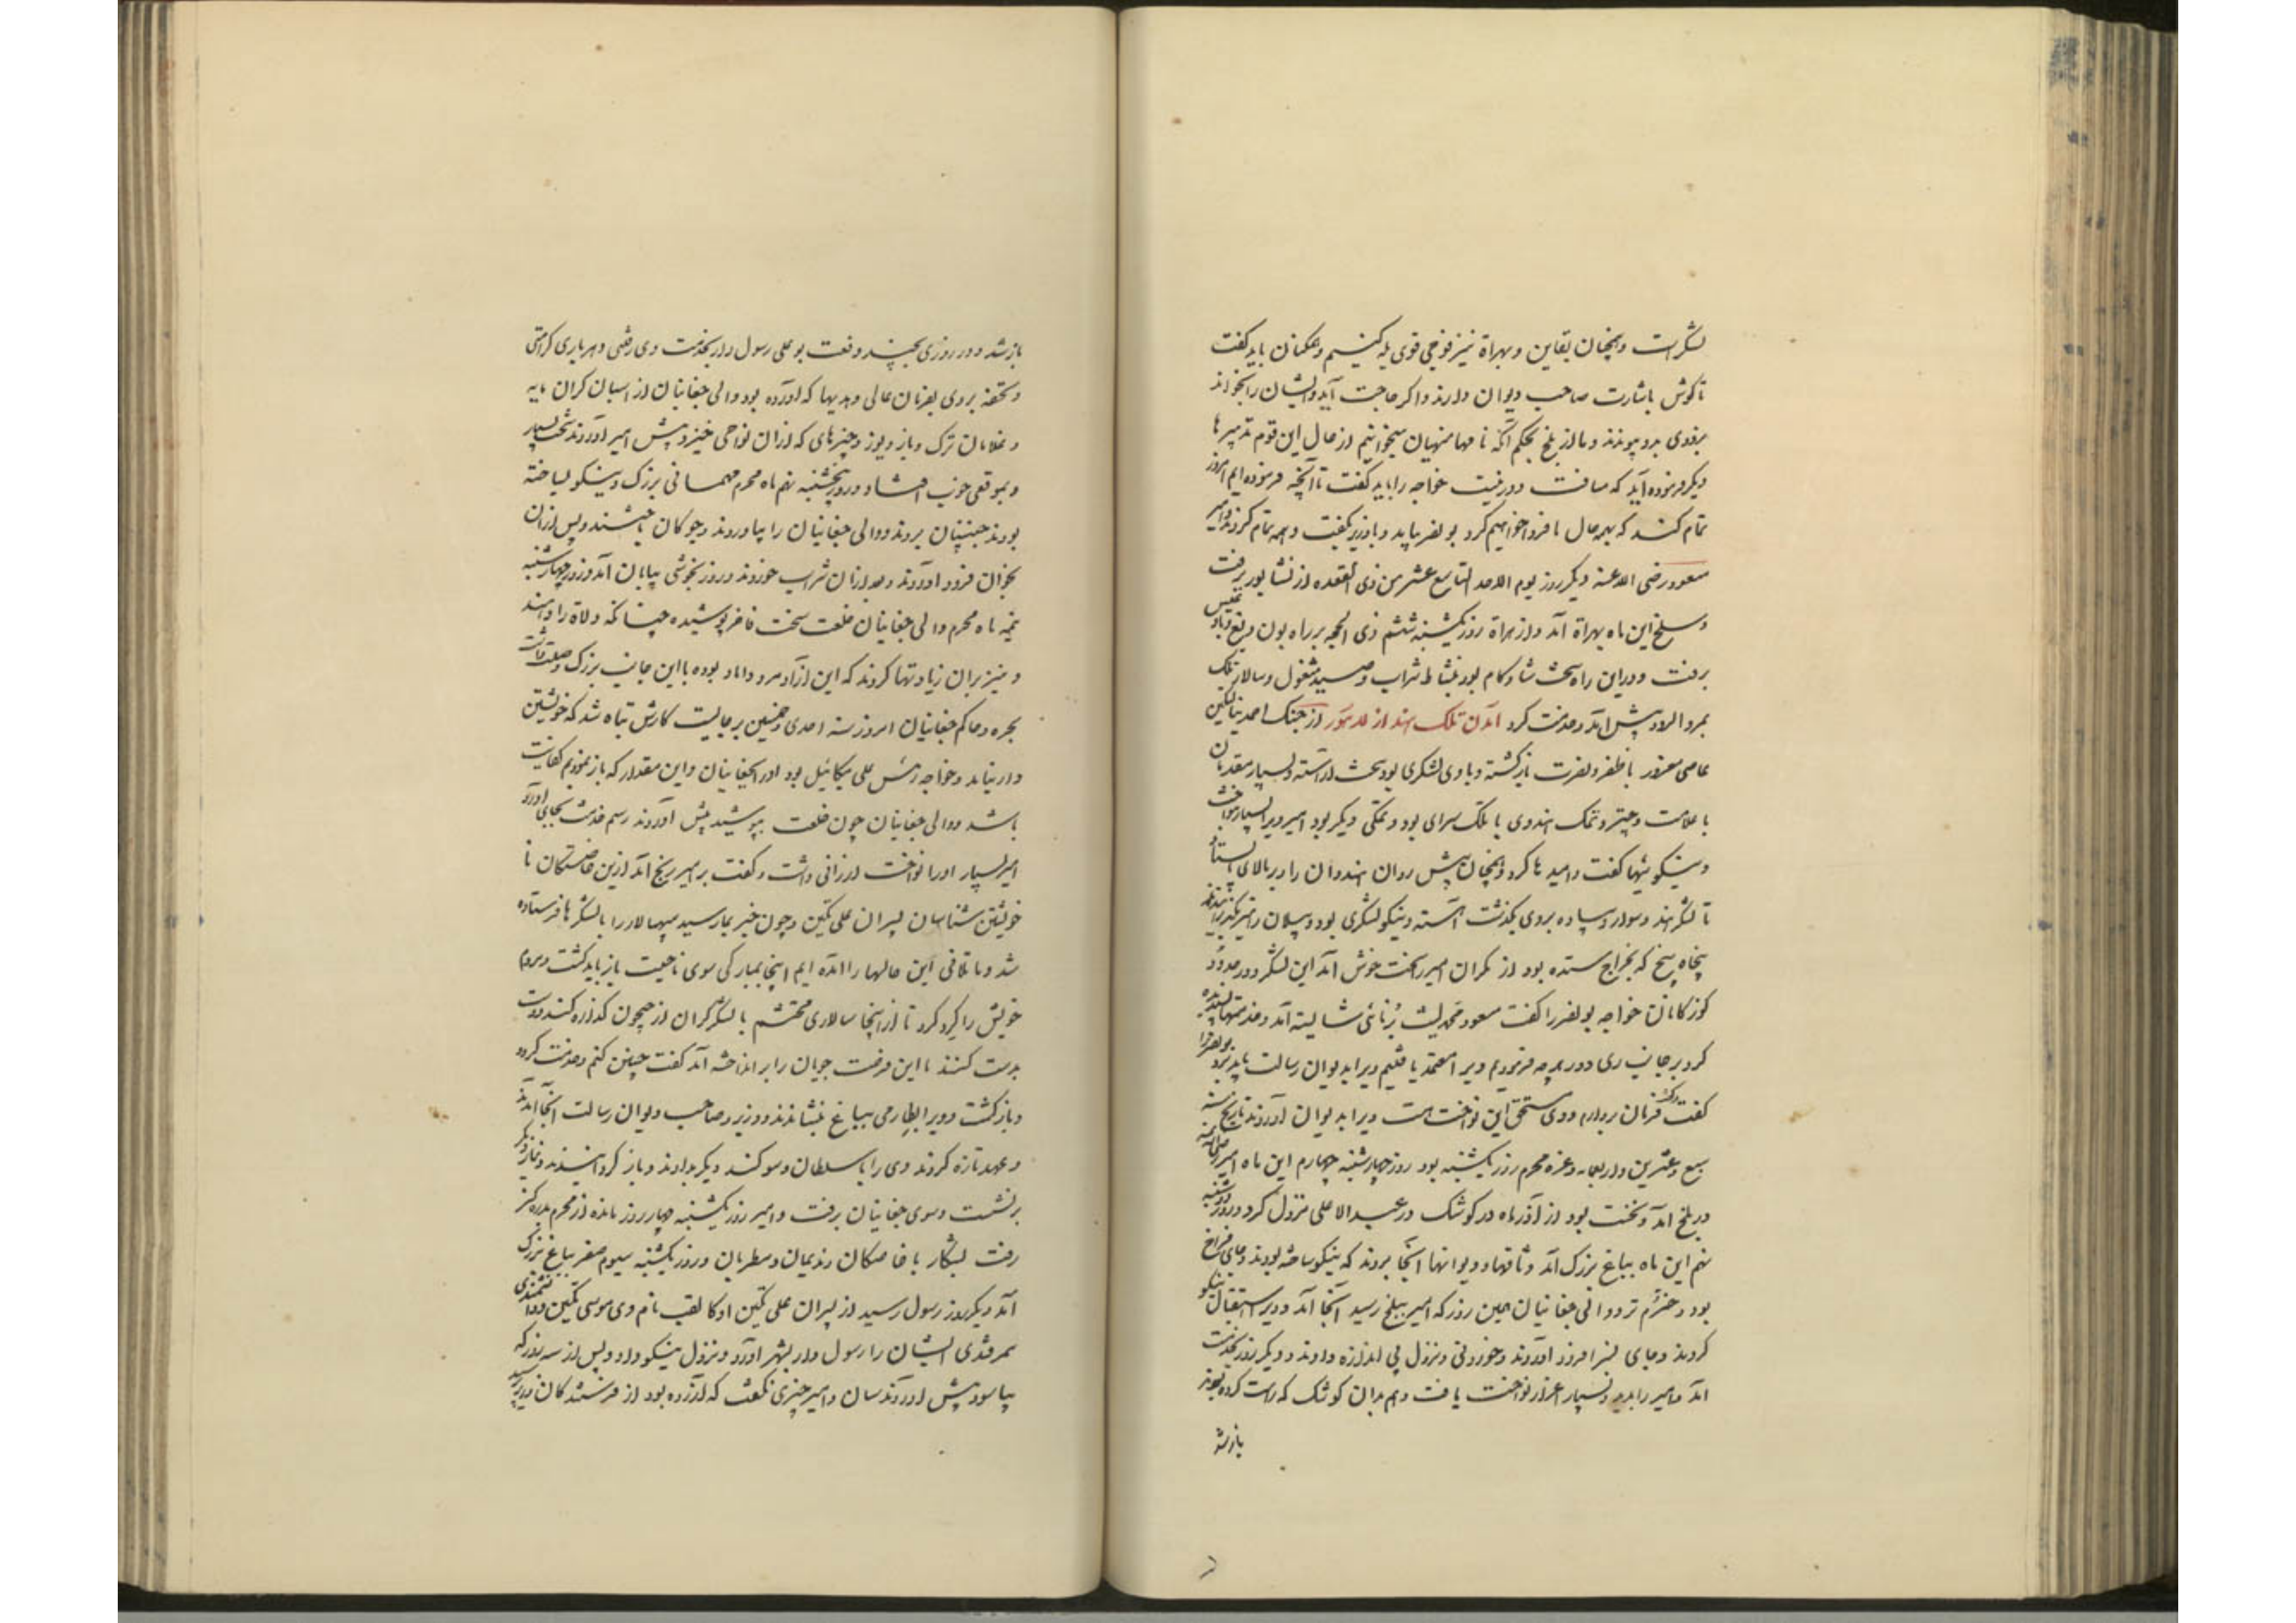 لشکرست و همچنان بقاین و بهراة نیز فوجی قوی یله کنیم و همگنان باید گفت
تا گوش باشارت صاحب دیوان دارند و اگر حاجت آید و ایشان را بخواند
بزودی بدو پیوندند و ما از بلخ بحکم آنکه نامهاء منهیان میخوانیم از حال این قوم تدبیرها
دیگر فرموده آید که مسافت دور نیست خواجه را باید گفت تا آنچه فرموده ایم امروز
تمام کند که بهمه حال ما فردا خواهیم کرد بونصر بیامد و با وزیر بگفت و همه تمام کردند و امیر
مسعود رضی الله عنه دیگر روز یوم الاحد التاسع عشر من ذی القعده از نشابور برفت
و سلخ این ماه بهراة آمد و از هراة روز یکشنبه ششم ذی الحجه بر راه بون و بغ و بادغیس
برفت و درین راه سخت شادکام بود بنشاط شراب و صید مشغول و سالار تلک
بمرو الرود پیش آمد و خدمت کرد آمدن تلک هند از لاهور از جنگ احمد ینالتکین
عاصی مغرور با ظفر و نصرت بازگشته و با وی لشکری بود سخت آراسته و بسیار مقدمان
با علامت و چتر و تلک هندوی با تلک سرای بود و تمکی دیگر بود امیر ویرا بسیار بنواخت
و نیکوئیها گفت و امید ها کرد و همچنان پیش روان هندوان را و بر بالای ایستاد
تا لشکر هند و سوار و پیاده بروی بگذشت آراسته و نیکو لشکری بود و پیلان را نیز بگذرانیدند
پنجاه و پنج که بخراج ستده بود از مکران امیر را سخت خوش آمد این لشکر و در حدود
کوزکانان خواجه بونصر را گفت مسعود محمد لیث برنائی شایسته آمد و خدمتهاء پسندیده
کرد بر جانب ری و در هر چه فرمودیم ویرا معتمد یافتیم ویرا بدیوان رسالت باید برد بونصر
گفت فرمان بردارم و وی مستحق این نواخت هست ویرا بدیوان آوردند تاریخ سنه
سبع و عشرین و اربعمایه و غره محرم روز یکشنبه بود روز چهارشنبه چهارم این ماه امیر
در بلخ آمد و نخست بود از آذر ماه در کوشک در عبدالاعلی نزول کرد و روز دوشنبه
نهم این ماه بباغ بزرگ آمد و وثاقها و دیوانها آنجا بردند که نیکو ساخته بودند و جای فراخ
بود و خرم تر و والی چغانیان همین روز که امیر ببلخ رسید آنجا آمد و ویرا استقبال نیکو
کردند و جای بسزا فرود آوردند و خوردنی و نزل بی اندازه دادند و دیگر روز بخدمت
آمد و امیر را بدید و بسیار اعزاز و نواخت یافت و هم بدان کوشک که راست کرده بودند
باز شد
باز شد و در روزی بچند دفعت بوعلی رسول دار بخدمت وی رفتی و هر باری کرامتی
و تحفه بروی بفرمان عالی و هدیها که آورده بود والی چغانیان از اسبان گران مایه
و غلامان ترک و باز و یوز و چیزهای که از آن نواحی خیزد پیش امیر آوردند سخت بسیار
و بموقعی خوب افتاد و روز پنجشنبه نهم ماه محرم مهمانی بزرگ و نیکو بساخته
بودند جنیبتان بردند و والی چغانیان را بیاوردند و چوگان باختند و پس از آن
بخوان فرود آوردند و بعد از نان شراب خوردند و روز بخوشی بپایان آمد و روز چهارشنبه
نیمه ماه محرم والی چغانیان خلعت سخت فاخر پوشیده چنانکه ولاة را دهند
و نیز بر آن زیادتها کردند که این آزاد مرد داماد بوده با این جانب بزرگ و وصلت داشت
بحره و حاکم چغانیان امروز سنه احدی و خمسین برجایست کارش تباه شد که خویشتن
دار نیامد و خواجه رئیس علی میکائیل بود او را بچغانیان و این مقدار که باز نمودیم کفایت
باشد و والی چغانیان چون خلعت بپوشید پیش آوردند رسم خدمت بجای آورد
امیر بسیار او را نواخت ارزانی داشت و گفت بر امیر رنج آمد ازین خاستگان نا
خویشتن شناسان پسران علی تکین و چون خبر بما رسید سپهسالار را با لشکرها فرستاده
شد و ما تلافی این حالها را آمده ایم اینجا بمبارکی سوی ناحیت باز باید گشت و مردم
خویش را گرد کرد تا از اینجا سالاری محتشم با لشکر گران از جیحون گذاره کند و دست
بدست کنند تا این فرصت جویان را بر انداخته آمد گفت چنین کنم و خدمت کرد
و بازگشت و ویرا بطارمی بباغ بنشاندند و وزیر و صاحب دیوان رسالت آنجا آمدند
و عهد تازه کردند وی را با سلطان و سوگند دیگر بدادند و باز گردانیدند و نماز دیگر
برنشست و سوی چغانیان برفت و امیر روز یکشنبه چهار روز مانده از محرم بدره گز
رفت بشکار با خاصگان و ندیمان و مطربان و روز یکشنبه سیوم صفر بباغ بزرگ
آمد دیگر روز رسول رسید از پسران علی تکین اوکا لقب نام وی موسی تکین و دانشمندی
سمرقندی ایشان را رسول دار بشهر آورد و نزول نیکو داد و پس از سه روز که
بیاسود پیش آوردندشان و امیر چیزی نگفت که آزرده بود از فرستندگان وزیر پرسید